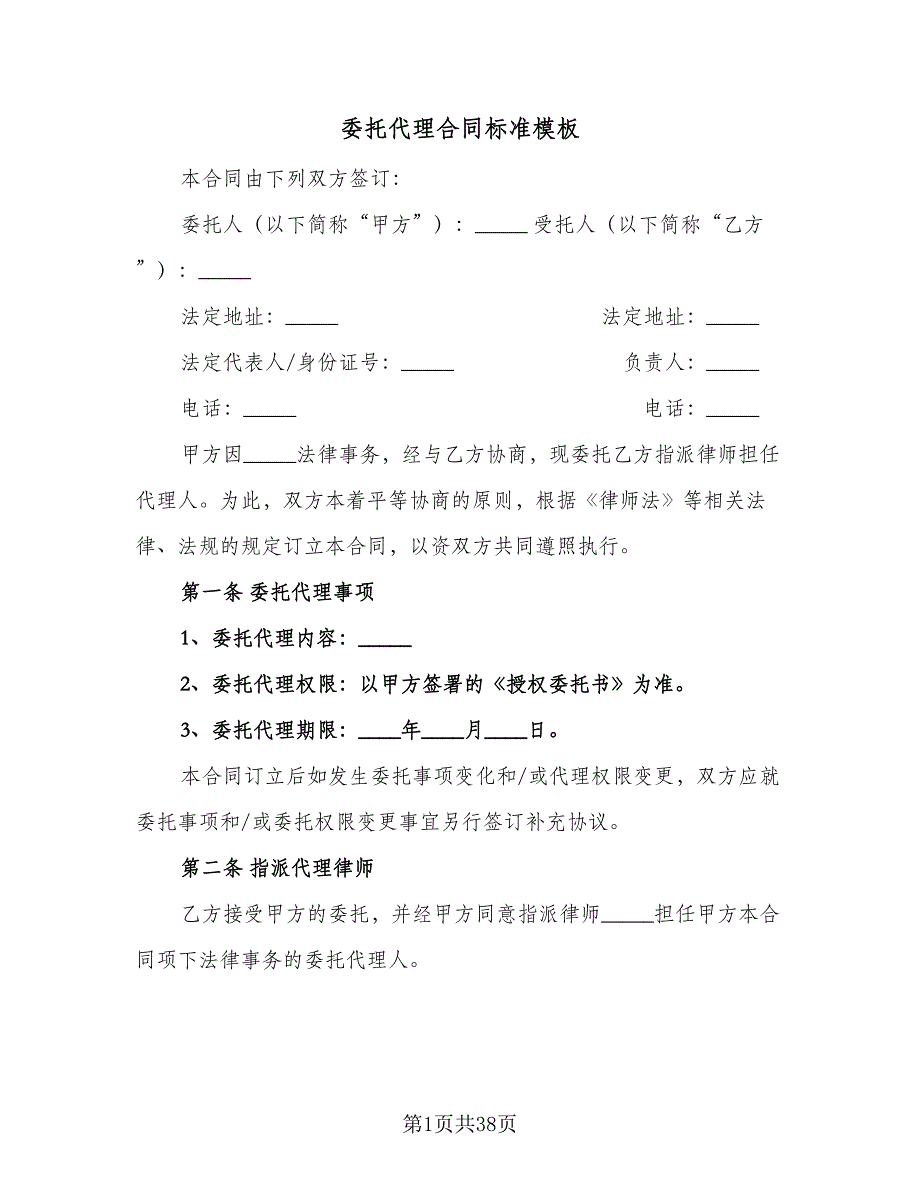 委托代理合同标准模板
本合同由下列双方签订：
委托人（以下简称“甲方”）：_____ 受托人（以下简称“乙方
”）：_____
法定地址：_____ 法定地址：_____
法定代表人/身份证号：_____ 负责人：_____
电话：_____ 电话：_____
甲方因_____法律事务，经与乙方协商，现委托乙方指派律师担任
代理人。为此，双方本着平等协商的原则，根据《律师法》等相关法
律、法规的规定订立本合同，以资双方共同遵照执行。
第一条 委托代理事项
1、委托代理内容：_____
2、委托代理权限：以甲方签署的《授权委托书》为准。
3、委托代理期限：____年____月____日。
本合同订立后如发生委托事项变化和/或代理权限变更，双方应就
委托事项和/或委托权限变更事宜另行签订补充协议。
第二条 指派代理律师
乙方接受甲方的委托，并经甲方同意指派律师_____担任甲方本合
同项下法律事务的委托代理人。
第1页共38页